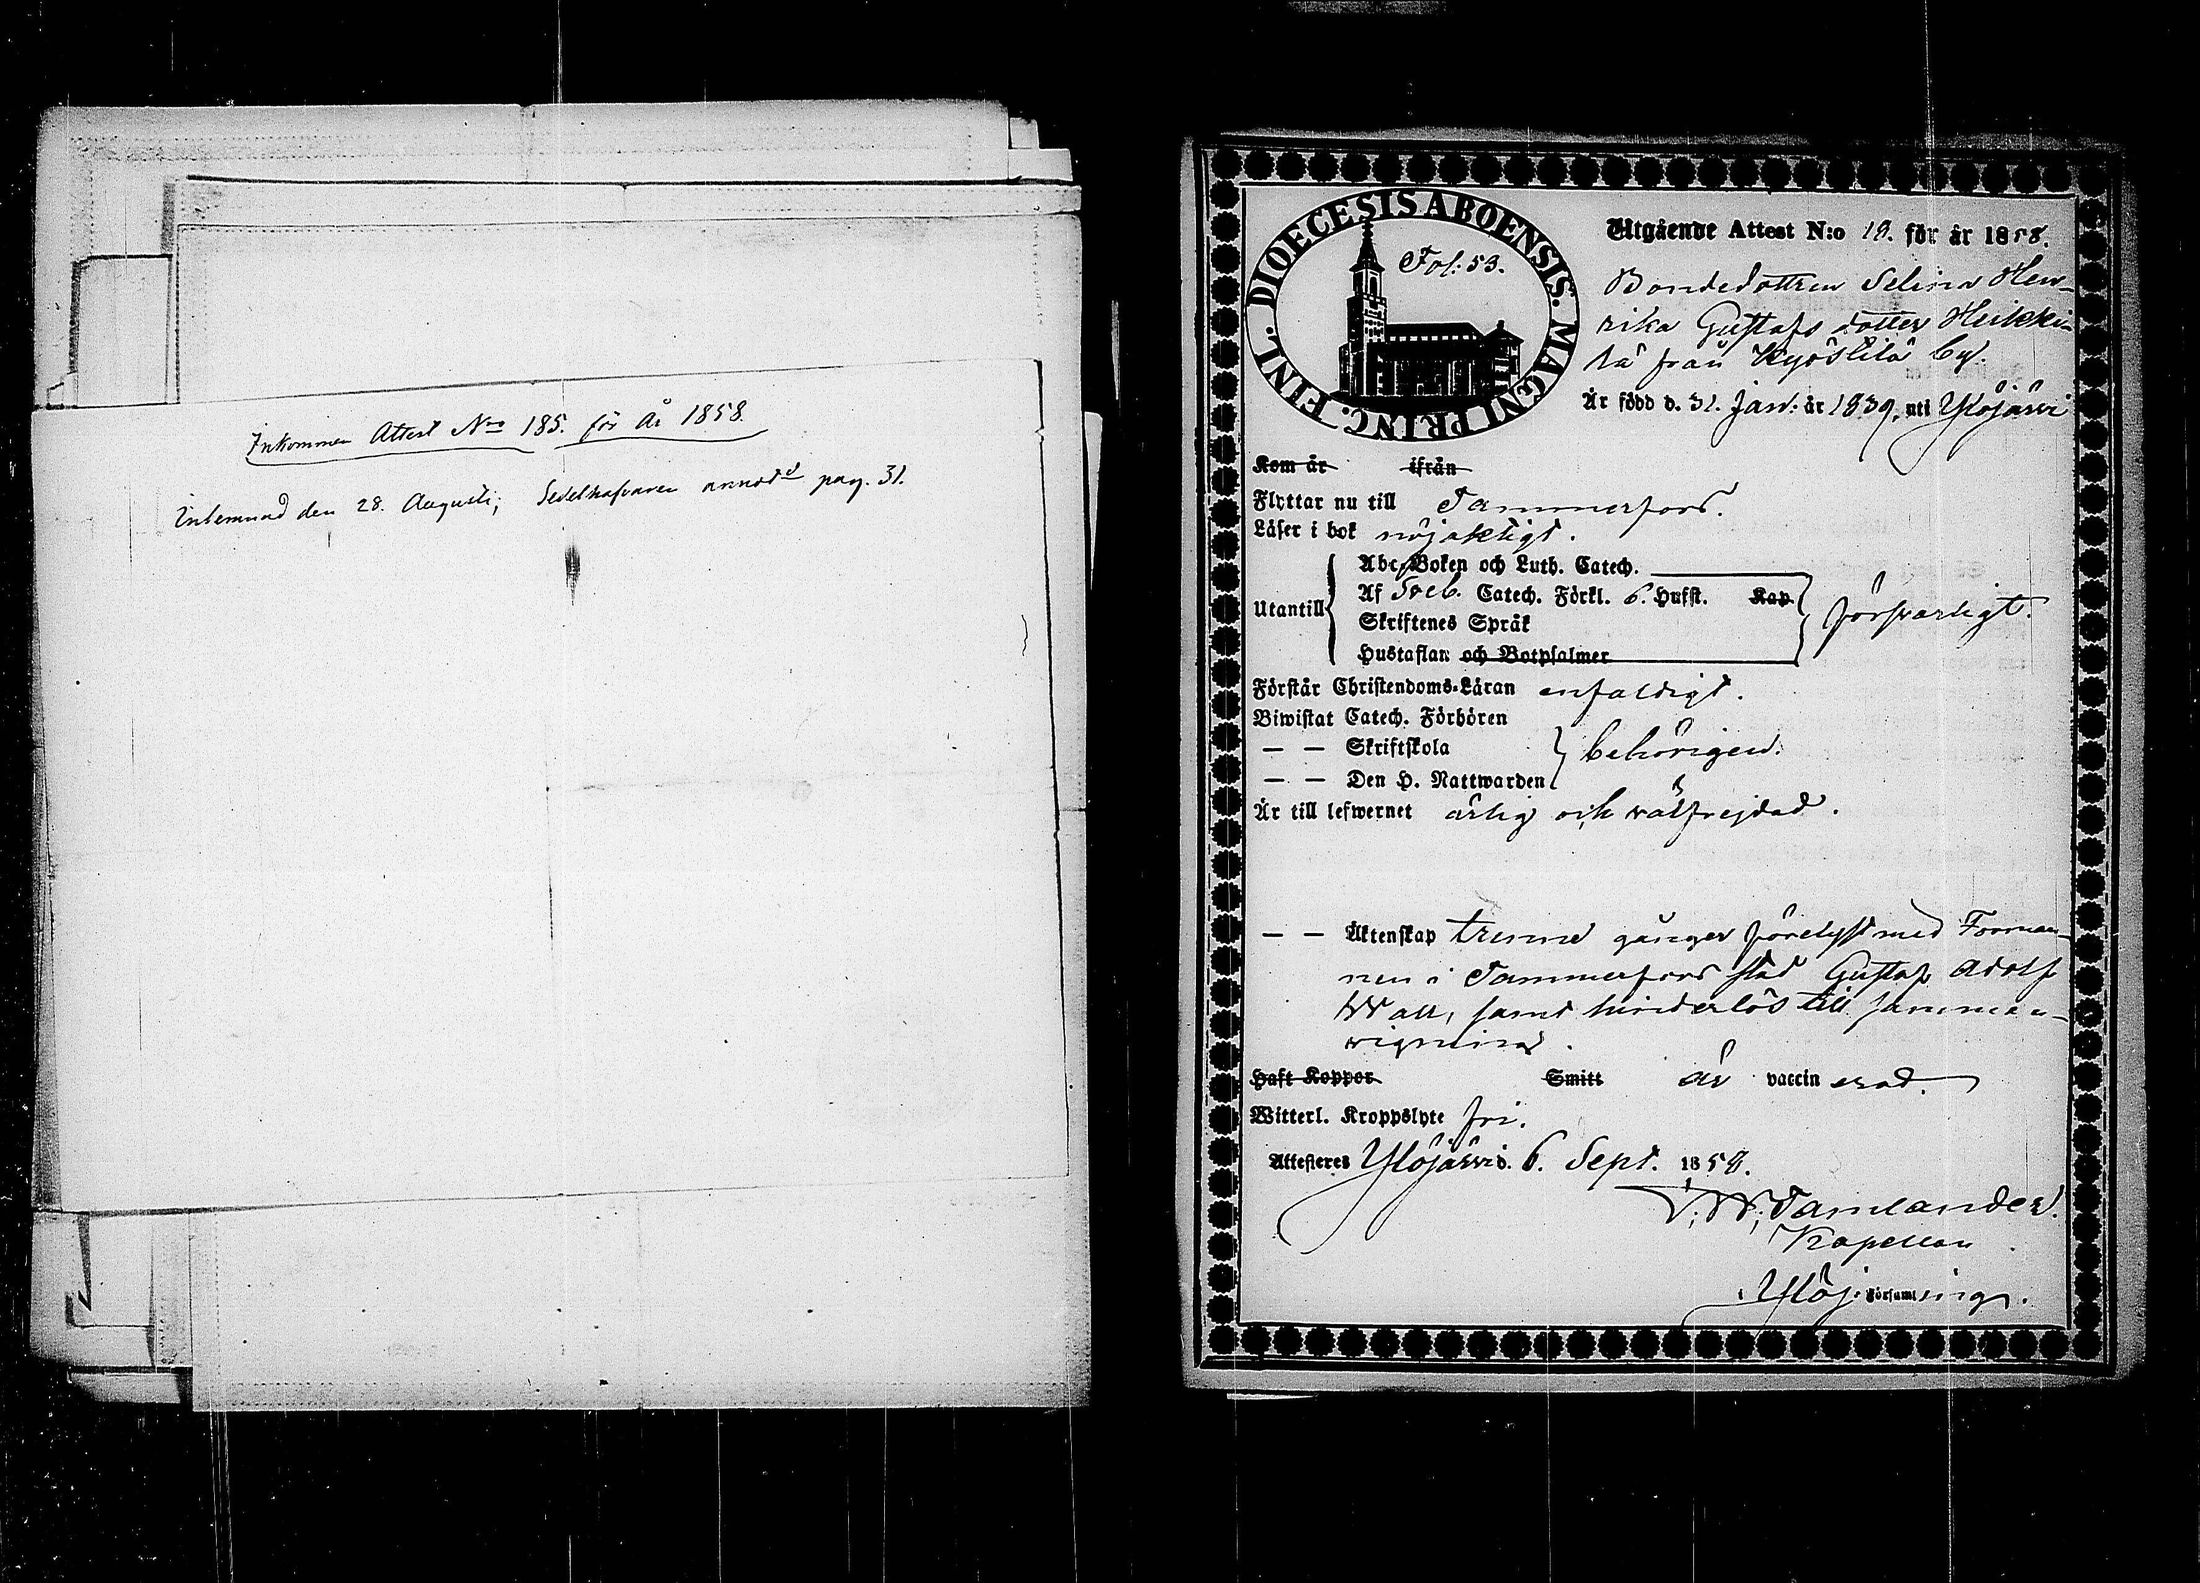 Inkommen Attest N:ro 185. för År 1858.
Inlemnad den 28. Augusti; Sedelhafvaren annot:d pag. 31.
DIOECESIS ABOENSIS. MAGNI PRINC. FINL.
Fol: 53.
Utgående Attest N:o 19. för år 1858.
Bondedottren Selina Hen-
rika Gustafs dotter Heikki-
lä från Kyöstilä by.
Är född d. 31. Jan: år 1839, uti Ylöjärvi
Kom år ifrån
Flyttar nu till Tammerfors.
Läser i bok nöjaktigt.
Utantill
Abc-Boken och Luth. Catech.
Af Sveb. Catech. Förkl. 6. Hufst. Kap
Skriftenes Språk
Hustaflan och Botpsalmer
försvarligt.
Förstår Christendoms-Läran enfaldigt.
Biwistat Catech. Förhören
— — Skriftskola
— — Den H. Nattwarden
behörigen.
Är till lefwernet ärlig och välfrejdad.
— — Äktenskap trenne gånger förelyst med Forman-
nen i Tammerfors stad Gustaf Adolf
Wall, samt hinderlös till samman-
vigning.
Haft Koppor Smitt är vaccinerad.
Witterl. Kroppslyte fri.
Attesteres Ylöjärvi d. 6. Sept. 1858.
Tamlander.
Kapellan
i Ylöj. Församling.